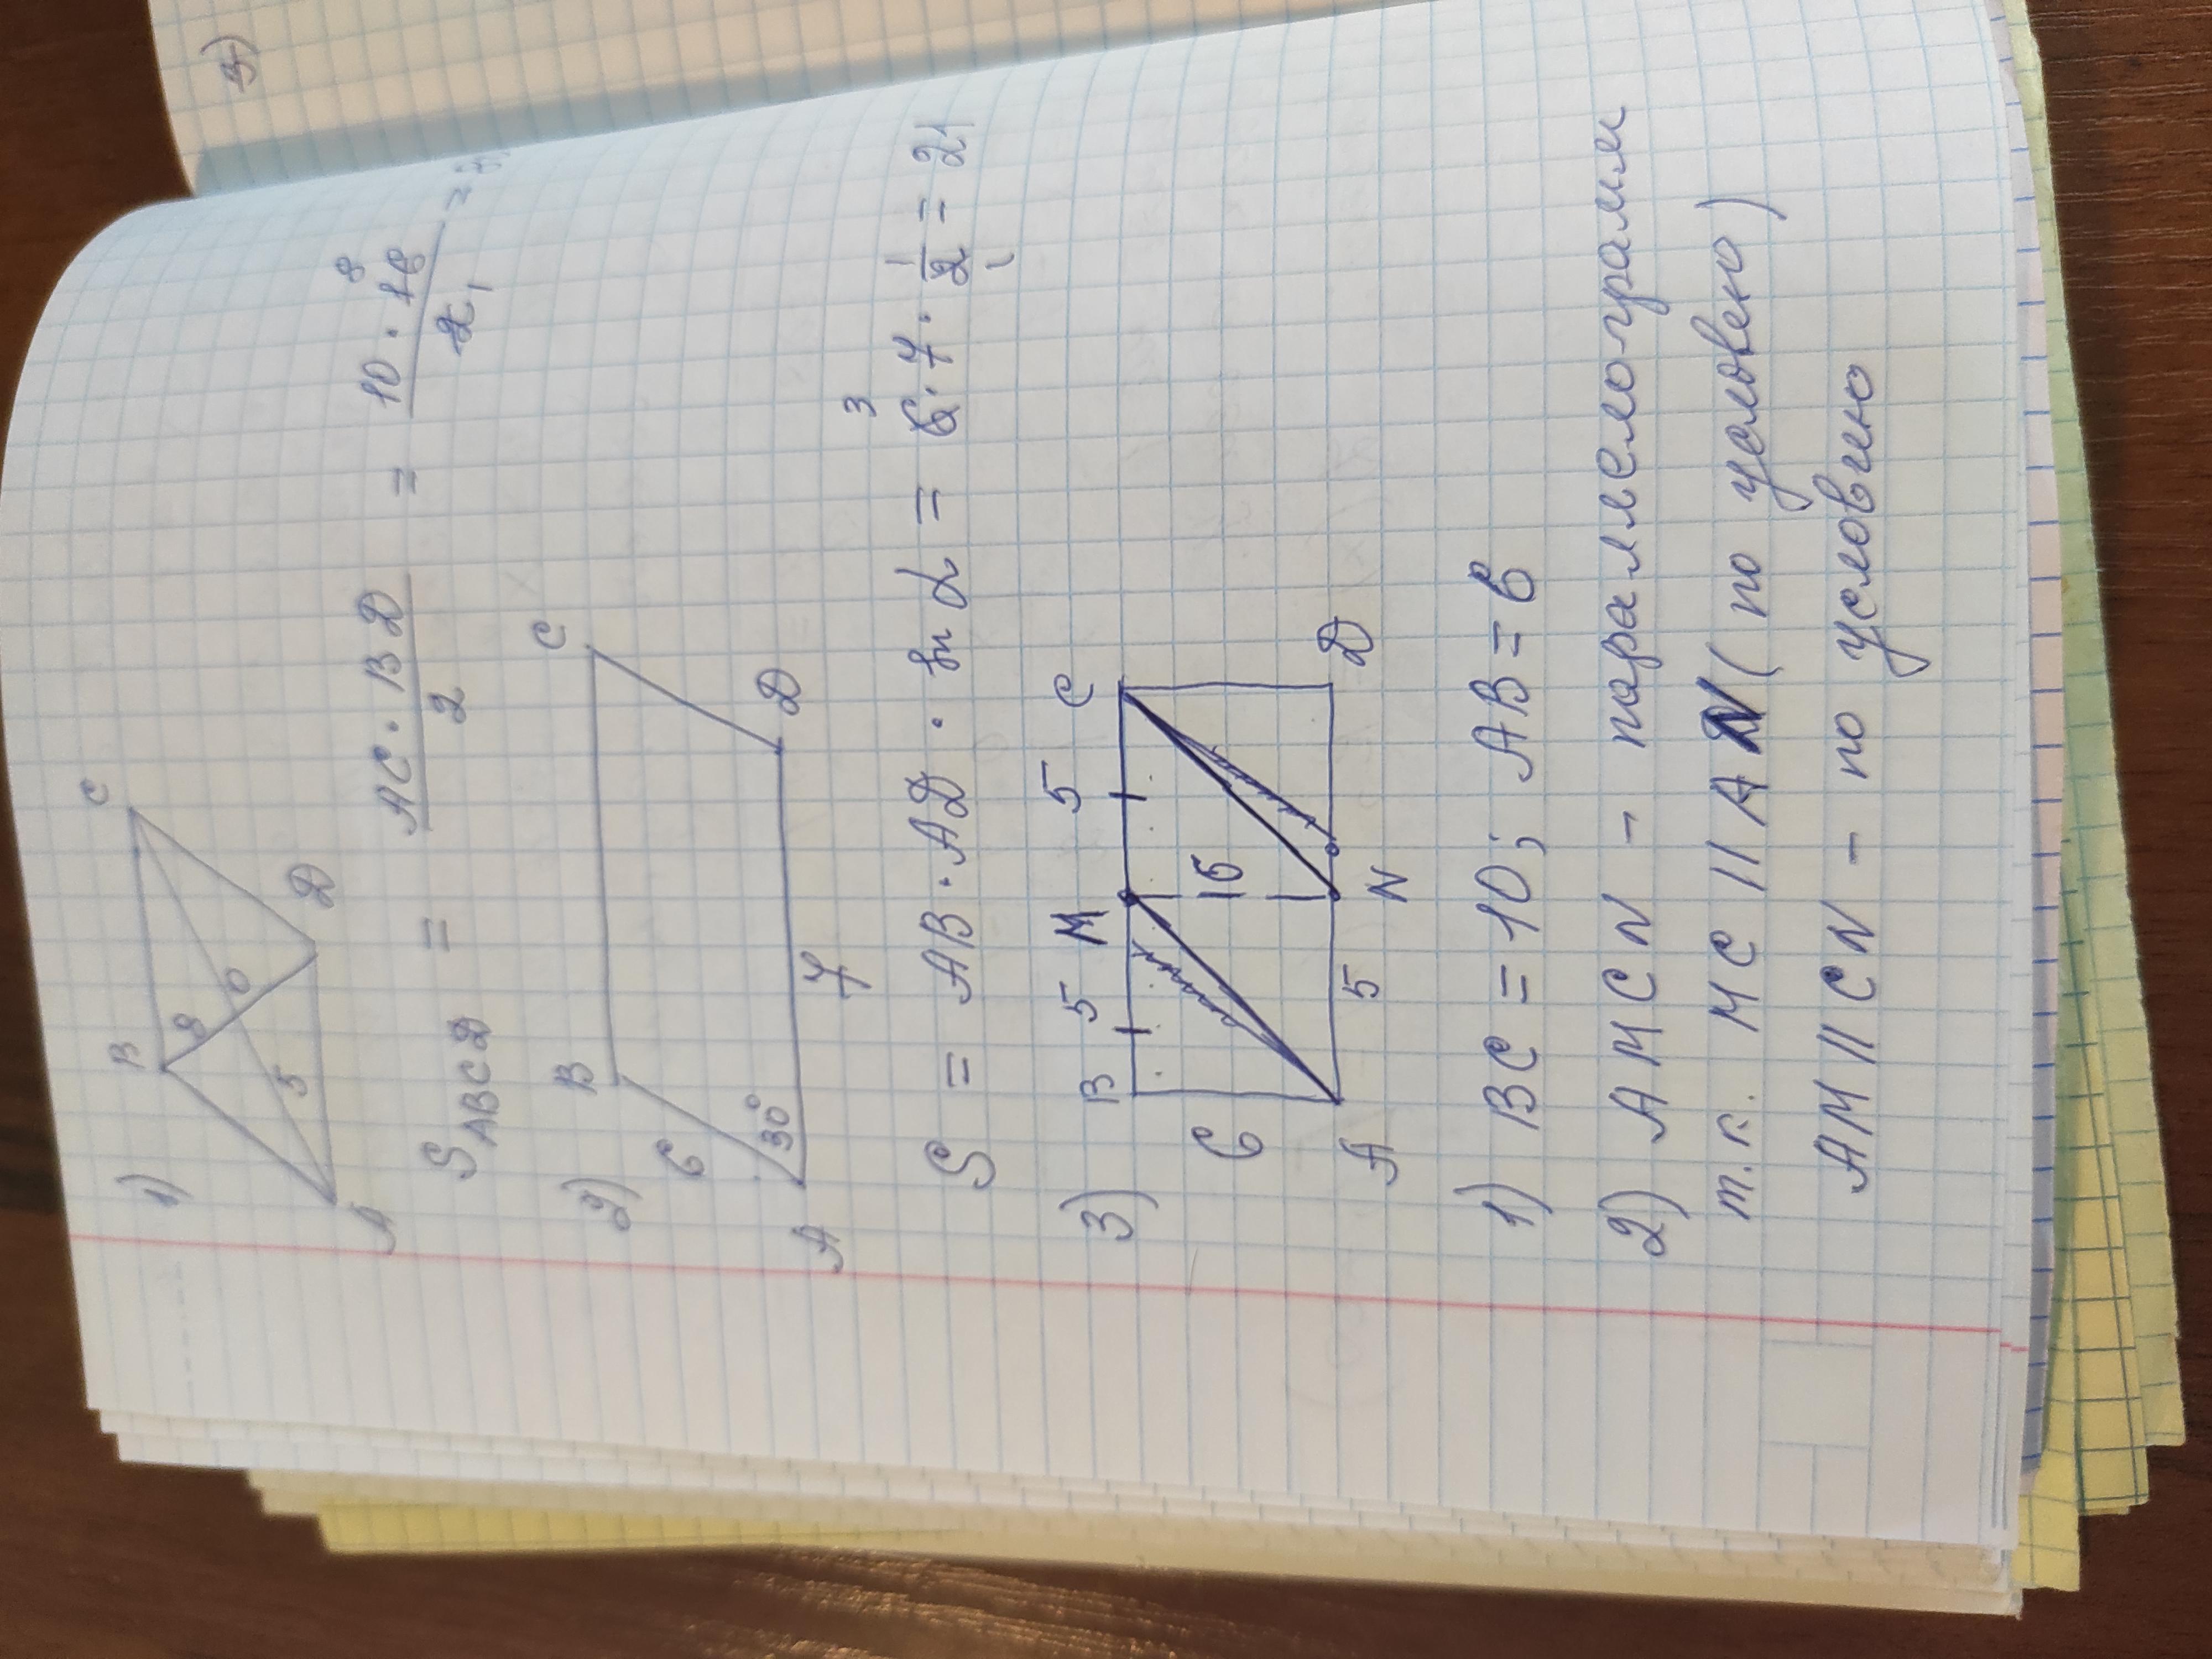 1)
B
C
8
O
5
A
D
S ABCD = AC · BD / 2 = 10 · 16 8 / 2 1 =
2)
B
C
6
30°
A
D
7
S = AB · AD · sin α = 6 3 · 7 · 1/2 1 = 21
3)
B 5 M 5 C
6
15
A 5 N D
1) BC = 10; AB = 6
2) AMCN – параллелограмм
т.к. MC || AN (по условию)
AM || CN – по условию